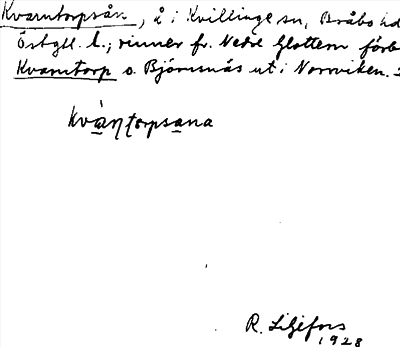 Kvarntorpsån, å i Kvillinge sn, Bråbo hd
Östgtl. l.; rinner fr. Nedre Glottern förb
Kvarntorp o. Björnsnäs ut i Norrviken.
Kvàn̥torpsana
R. Liljefors
1928